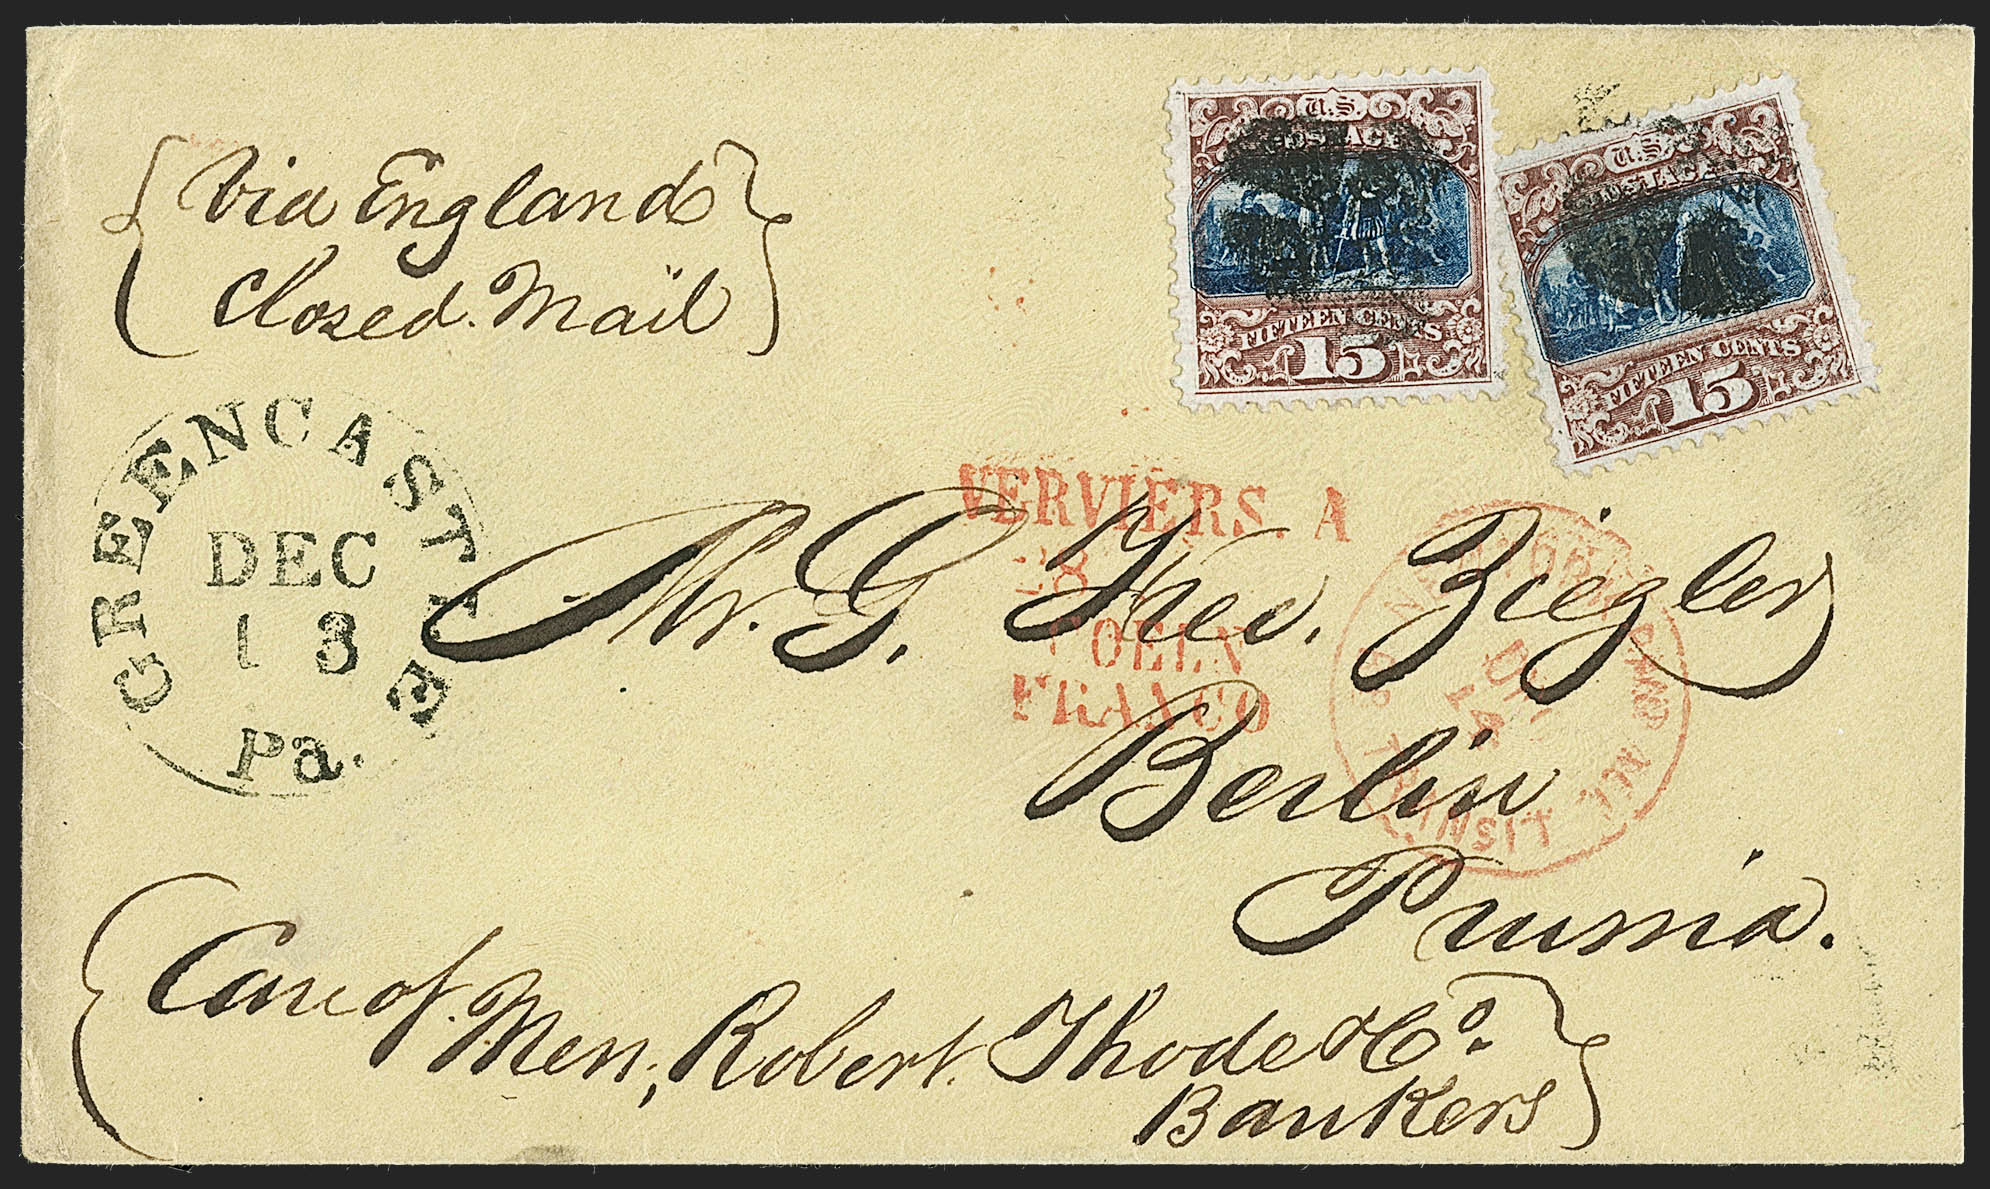 Via England
Closed Mail
U.S.
POSTAGE
FIFTEEN CENTS
15
U.S.
POSTAGE
FIFTEEN CENTS
15
GREENCASTLE
DEC
13
Pa.
VERVIERS. A
28
COELN
FRANCO
NEW YORK PAID ALL
BR. TRANSIT
DEC
14
Mr. G. Theo. Ziegler
Berlin
Prussia.
Care of Mess, Robert Thode & Co.
Bankers